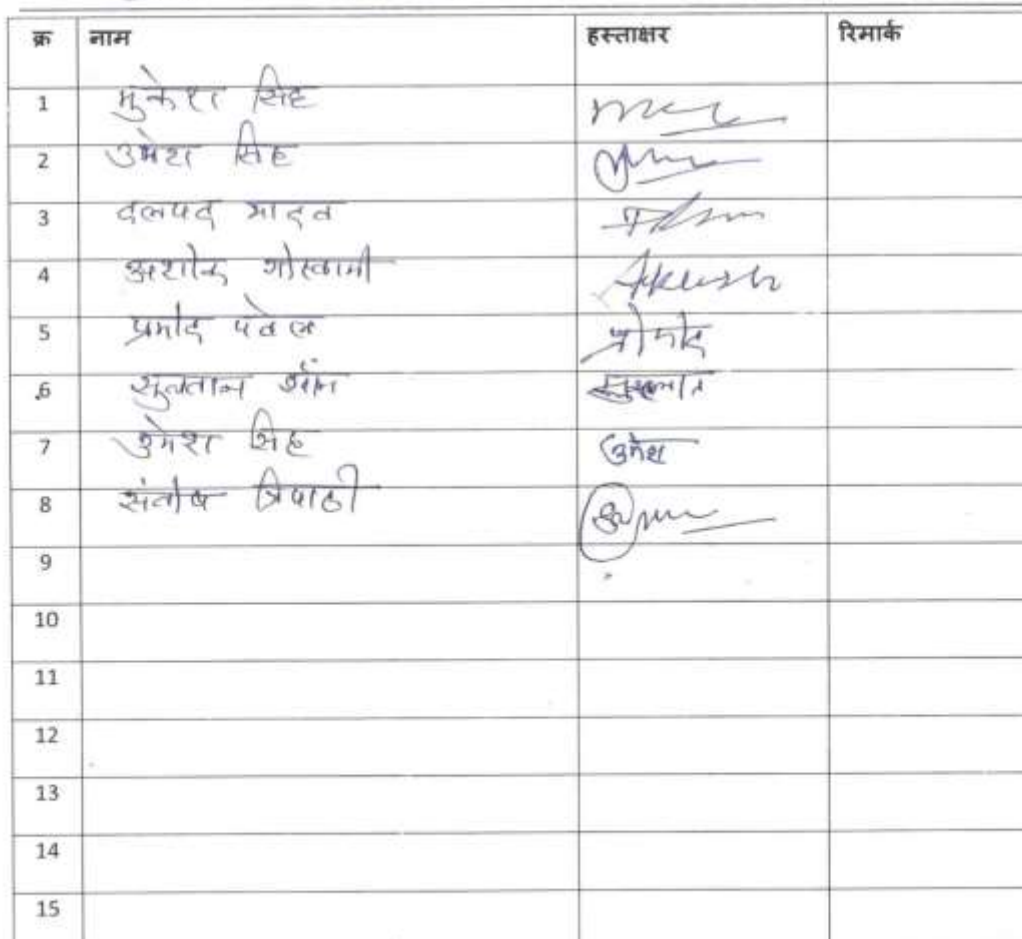 क्र नाम हस्ताक्षर रिमार्क
1 मुकेश सिंह
2 उमेश सिंह
3 दलपद यादव
4 अशोक गोस्वामी
5 प्रमोद पटेल प्रमोद
6 सुलतान
7 उमेश सिंह उमेश
8 संतोष त्रिपाठी
9
10
11
12
13
14
15